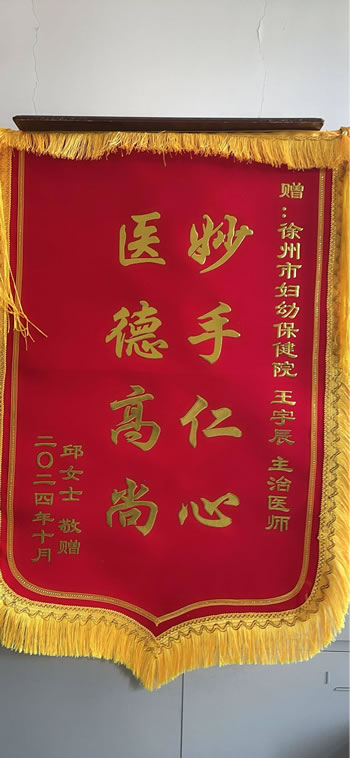 赠：徐州市妇幼保健院 王宇辰 主治医师
妙手仁心
医德高尚
邱女士 敬赠
二〇二四年十月